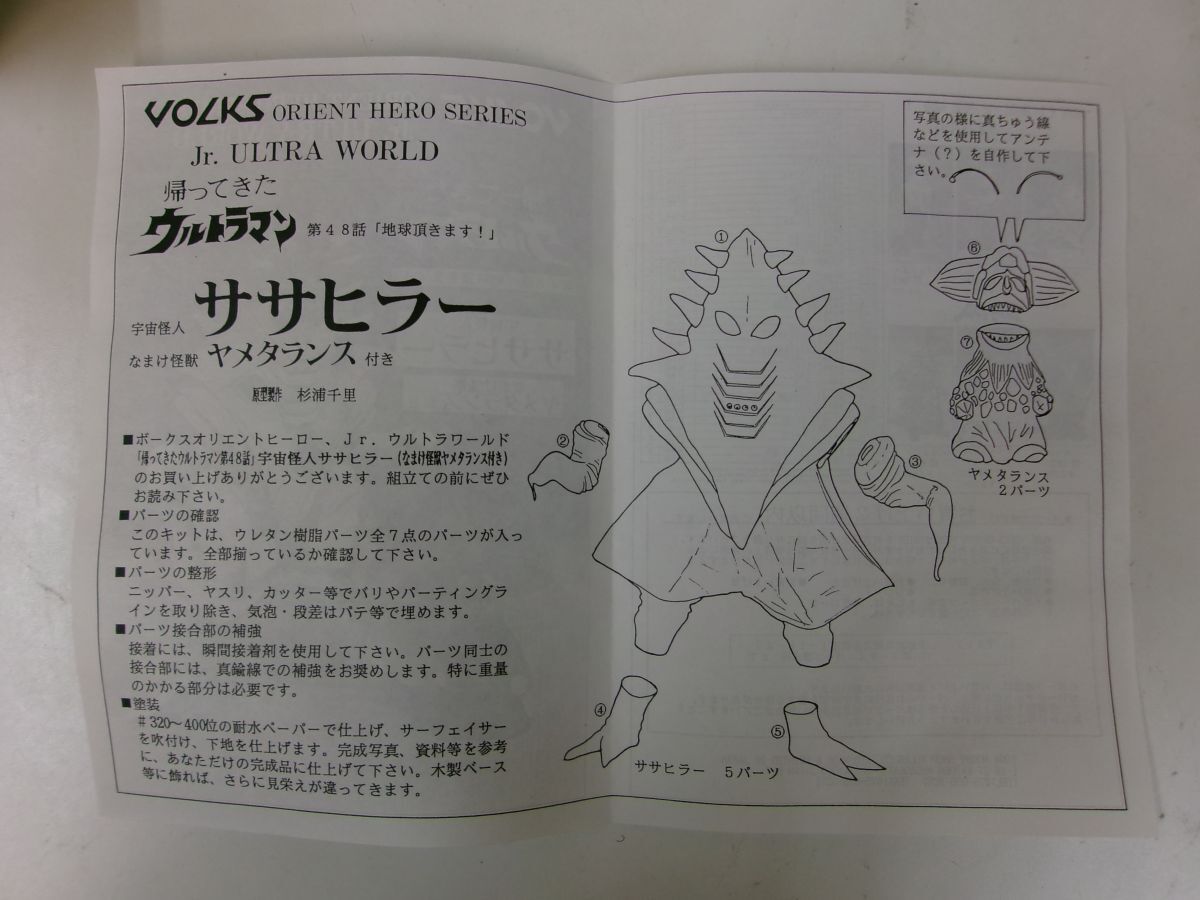 VOLKS ORIENT HERO SERIES
Jr. ULTRA WORLD
帰ってきた
ウルトラマン 第48話「地球頂きます!」
宇宙怪人 ササヒラー
なまけ怪獣 ヤメタランス 付き
原型製作 杉浦千里
■ボークスオリエントヒーロー、Jr.ウルトラワールド
「帰ってきたウルトラマン第48話」宇宙怪人ササヒラー(なまけ怪獣ヤメタランス付き)
のお買い上げありがとうございます。組立ての前にぜひ
お読み下さい。
■パーツの確認
このキットは、ウレタン樹脂パーツ全7点のパーツが入っ
ています。全部揃っているか確認して下さい。
■パーツの整形
ニッパー、ヤスリ、カッター等でバリやパーティングラ
インを取り除き、気泡・段差はパテ等で埋めます。
■パーツ接合部の補強
接着には、瞬間接着剤を使用して下さい。パーツ同士の
接合部には、真鍮線での補強をお奨めします。特に重量
のかかる部分は必要です。
■塗装
#320～400位の耐水ペーパーで仕上げ、サーフェイサー
を吹付け、下地を仕上げます。完成写真、資料等を参考
に、あなただけの完成品に仕上げて下さい。木製ベース
等に飾れば、さらに見栄えが違ってきます。
写真の様に真ちゅう線
などを使用してアンテ
ナ(?)を自作して下
さい。
①
⑥
⑦
②
③
ヤメタランス
2パーツ
④
⑤
ササヒラー 5パーツ